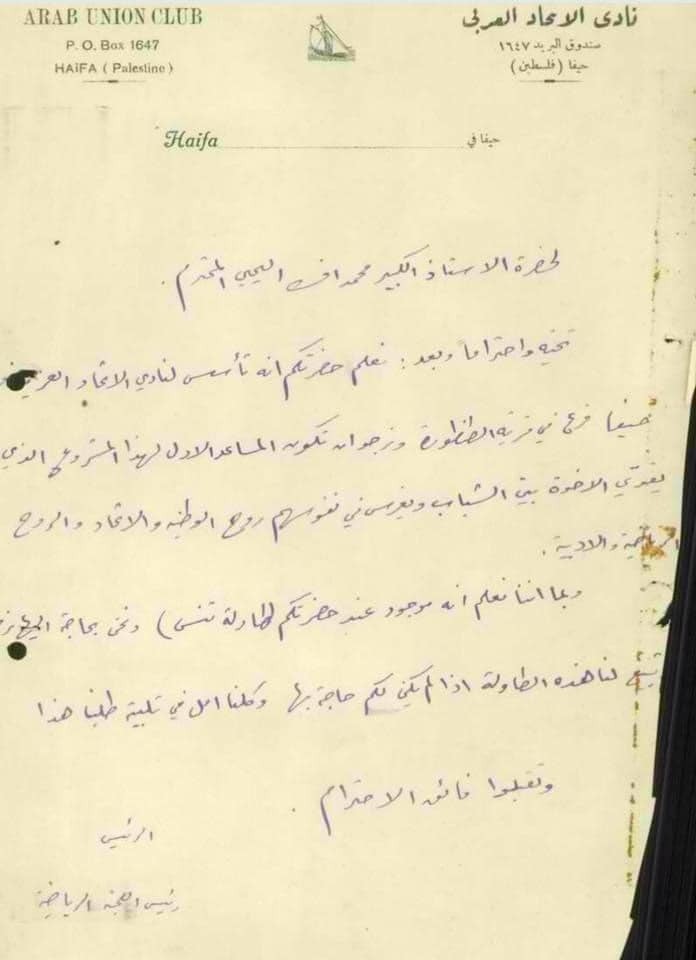 ARAB UNION CLUB
P. O. Box 1647
HAIFA ( Palestine )
نادى الاتحاد العربى
صندوق البريد ١٦٤٧
حيفا (فلسطين)
Haifa حيفا في
لحضرة الاستاذ الكبير محمد افندي اليحيى المحترم.
تحية واحتراما وبعد: نعلم حضرتكم انه تأسس لنادي الاتحاد العربي
حيفا فرع في قرية الطنطورة ونرجو ان تكون المساعد الاول لهذا المشروع الذي
يقوي الاخوة بين الشباب ويغرس في نفوسهم روح الوطنية والاتحاد والروح
الرياضية والادبية.
وبما اننا نعلم انه موجود عند حضرتكم (طاولة تنس) ونحن بحاجة اليها
لنا هذه الطاولة اذا لم يكن لكم حاجة بها وكلنا امل في تلبية طلبنا هذا
وتقبلوا فائق الاحترام.
الرئيس
رئيس اللجنة الرياضية